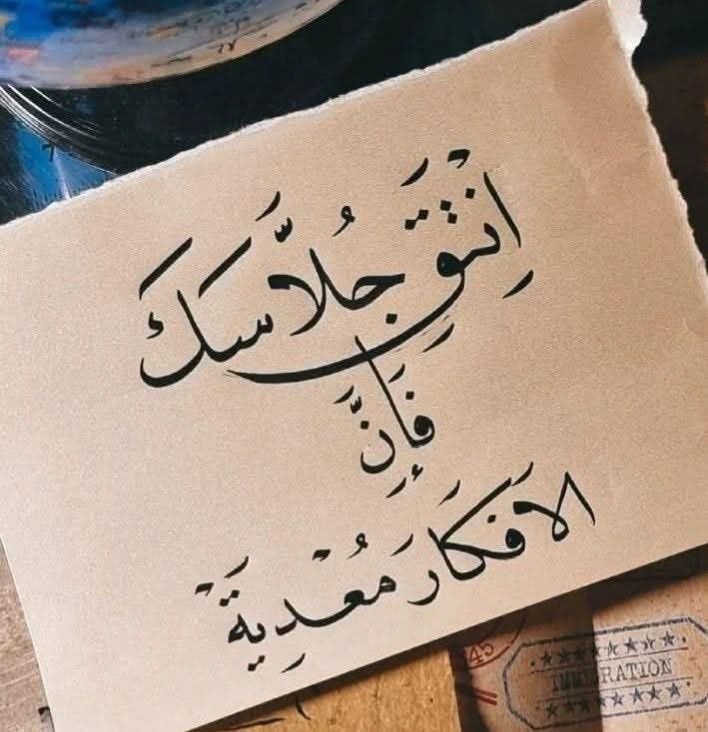 اِنْتَقِ جُلَّاسَكَ
فَإِنَّ
الافَكَارَ مُعْدِيَةٌ
45
IMMIGRATION